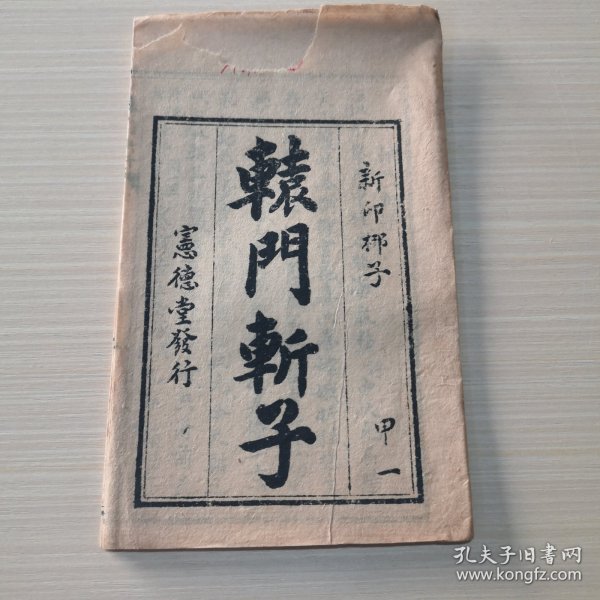 新印梆子
甲一
轅門斬子
憲德堂發行
孔夫子旧书网
www.kongfz.com